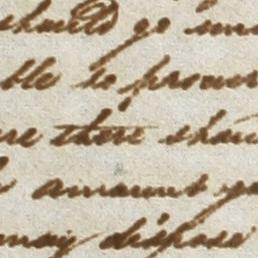 should go
ble to procur
re there shou
amount
may dispose